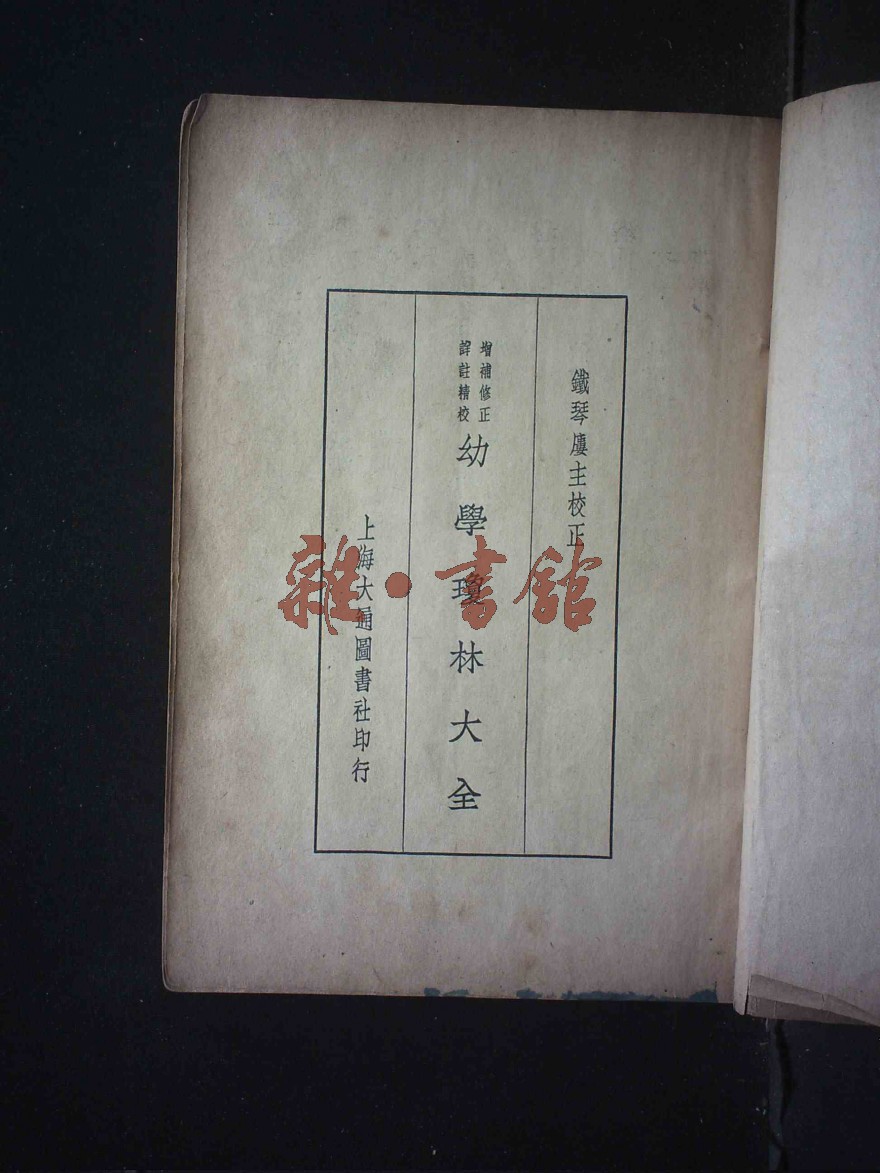 鐵琴廔主校正
增補修正
詳註精校
幼學瓊林大全
上海大通圖書社印行
雜·書館